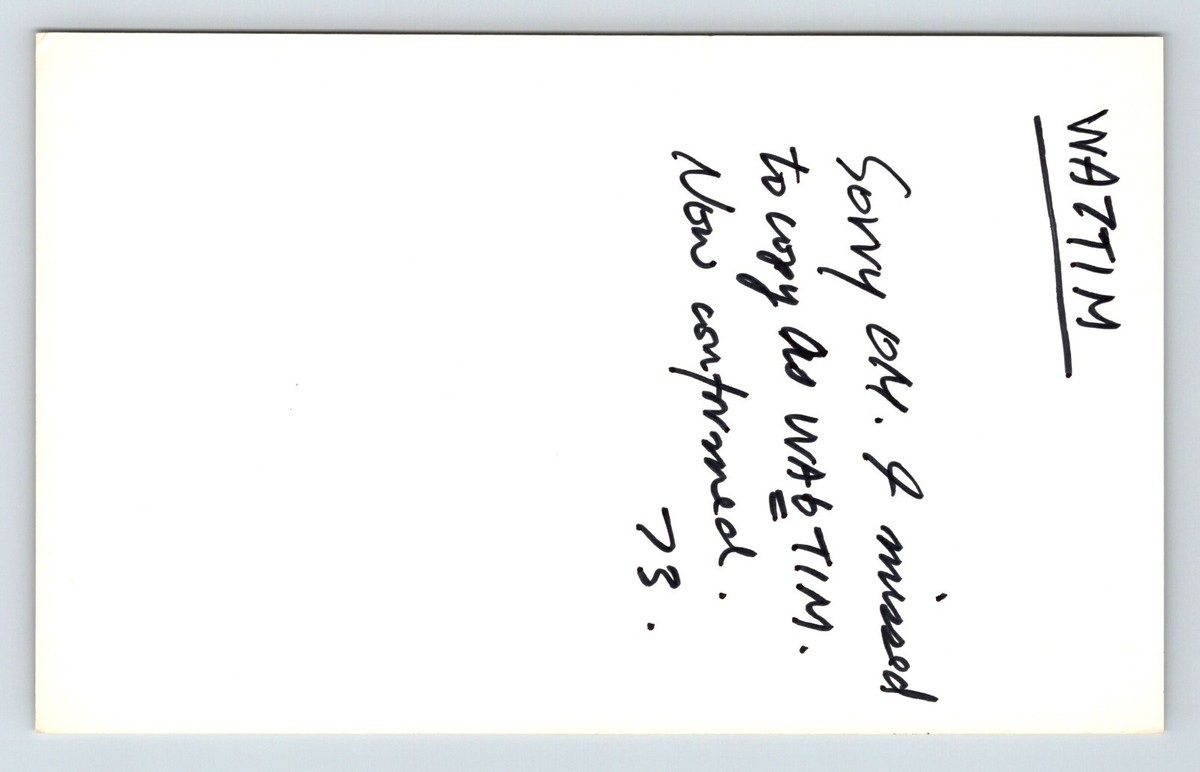 WA7TIM
Sorry OM. I missed
to copy as WA6TIM.
Now confirmed.
73.